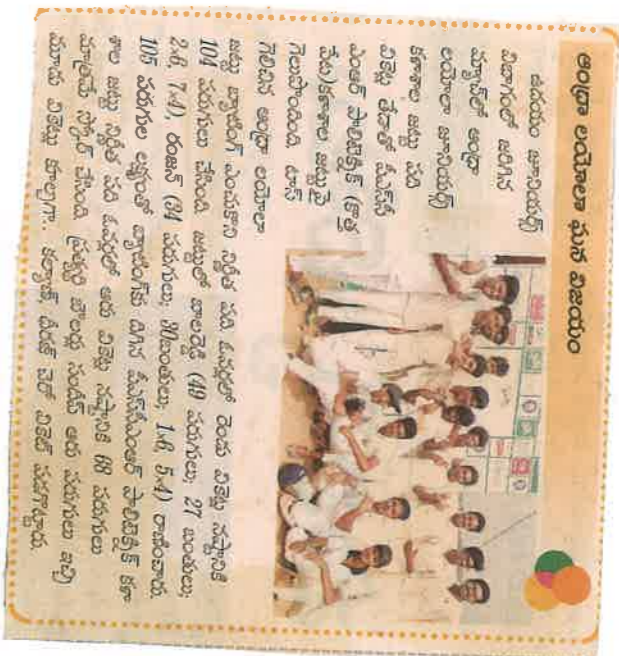 ఆంధ్రా లయోలా ఘన విజయం
ఉదయం జూనియర్స్
విభాగంలో జరిగిన
మ్యాచ్‌లో ఆంధ్రా
లయోలా జూనియర్స్
కళాశాల జట్టు పది
వికెట్ల తేడాతో
ఎంఆర్ పాలిటెక్నిక్ (కొత్త
పేట)కళాశాల జట్టుపై
గెలుపొందింది. టాస్
గెలిచిన ఆంధ్రా లయోలా
జట్టు బ్యాటింగ్ ఎంచుకొని నిర్ణీత పది ఓవర్లలో రెండు వికెట్ల నష్టానికి
104 పరుగులు చేసింది. జట్టులో బాలరెడ్డి (49 పరుగులు; 27 బంతులు;
2×6, 7×4), రంజన్ (34 పరుగులు; 30బంతులు; 1×6, 5×4) రాణించారు.
105 పరుగుల లక్ష్యంతో బ్యాటింగ్‌కు దిగిన పాలిటెక్నిక్ కళా
శాల జట్టు నిర్ణీత పది ఓవర్లలో ఆరు వికెట్ల నష్టానికి 68 పరుగులు
మాత్రమే స్కోర్ చేసింది. ప్రత్యర్థి బౌలర్లు సందీప్ ఆరు పరుగులు ఇచ్చి
మూడు వికెట్లు కూల్చగా.. కల్యాణ్, ధీరజ్ చెరో వికెట్ పడగొట్టారు.